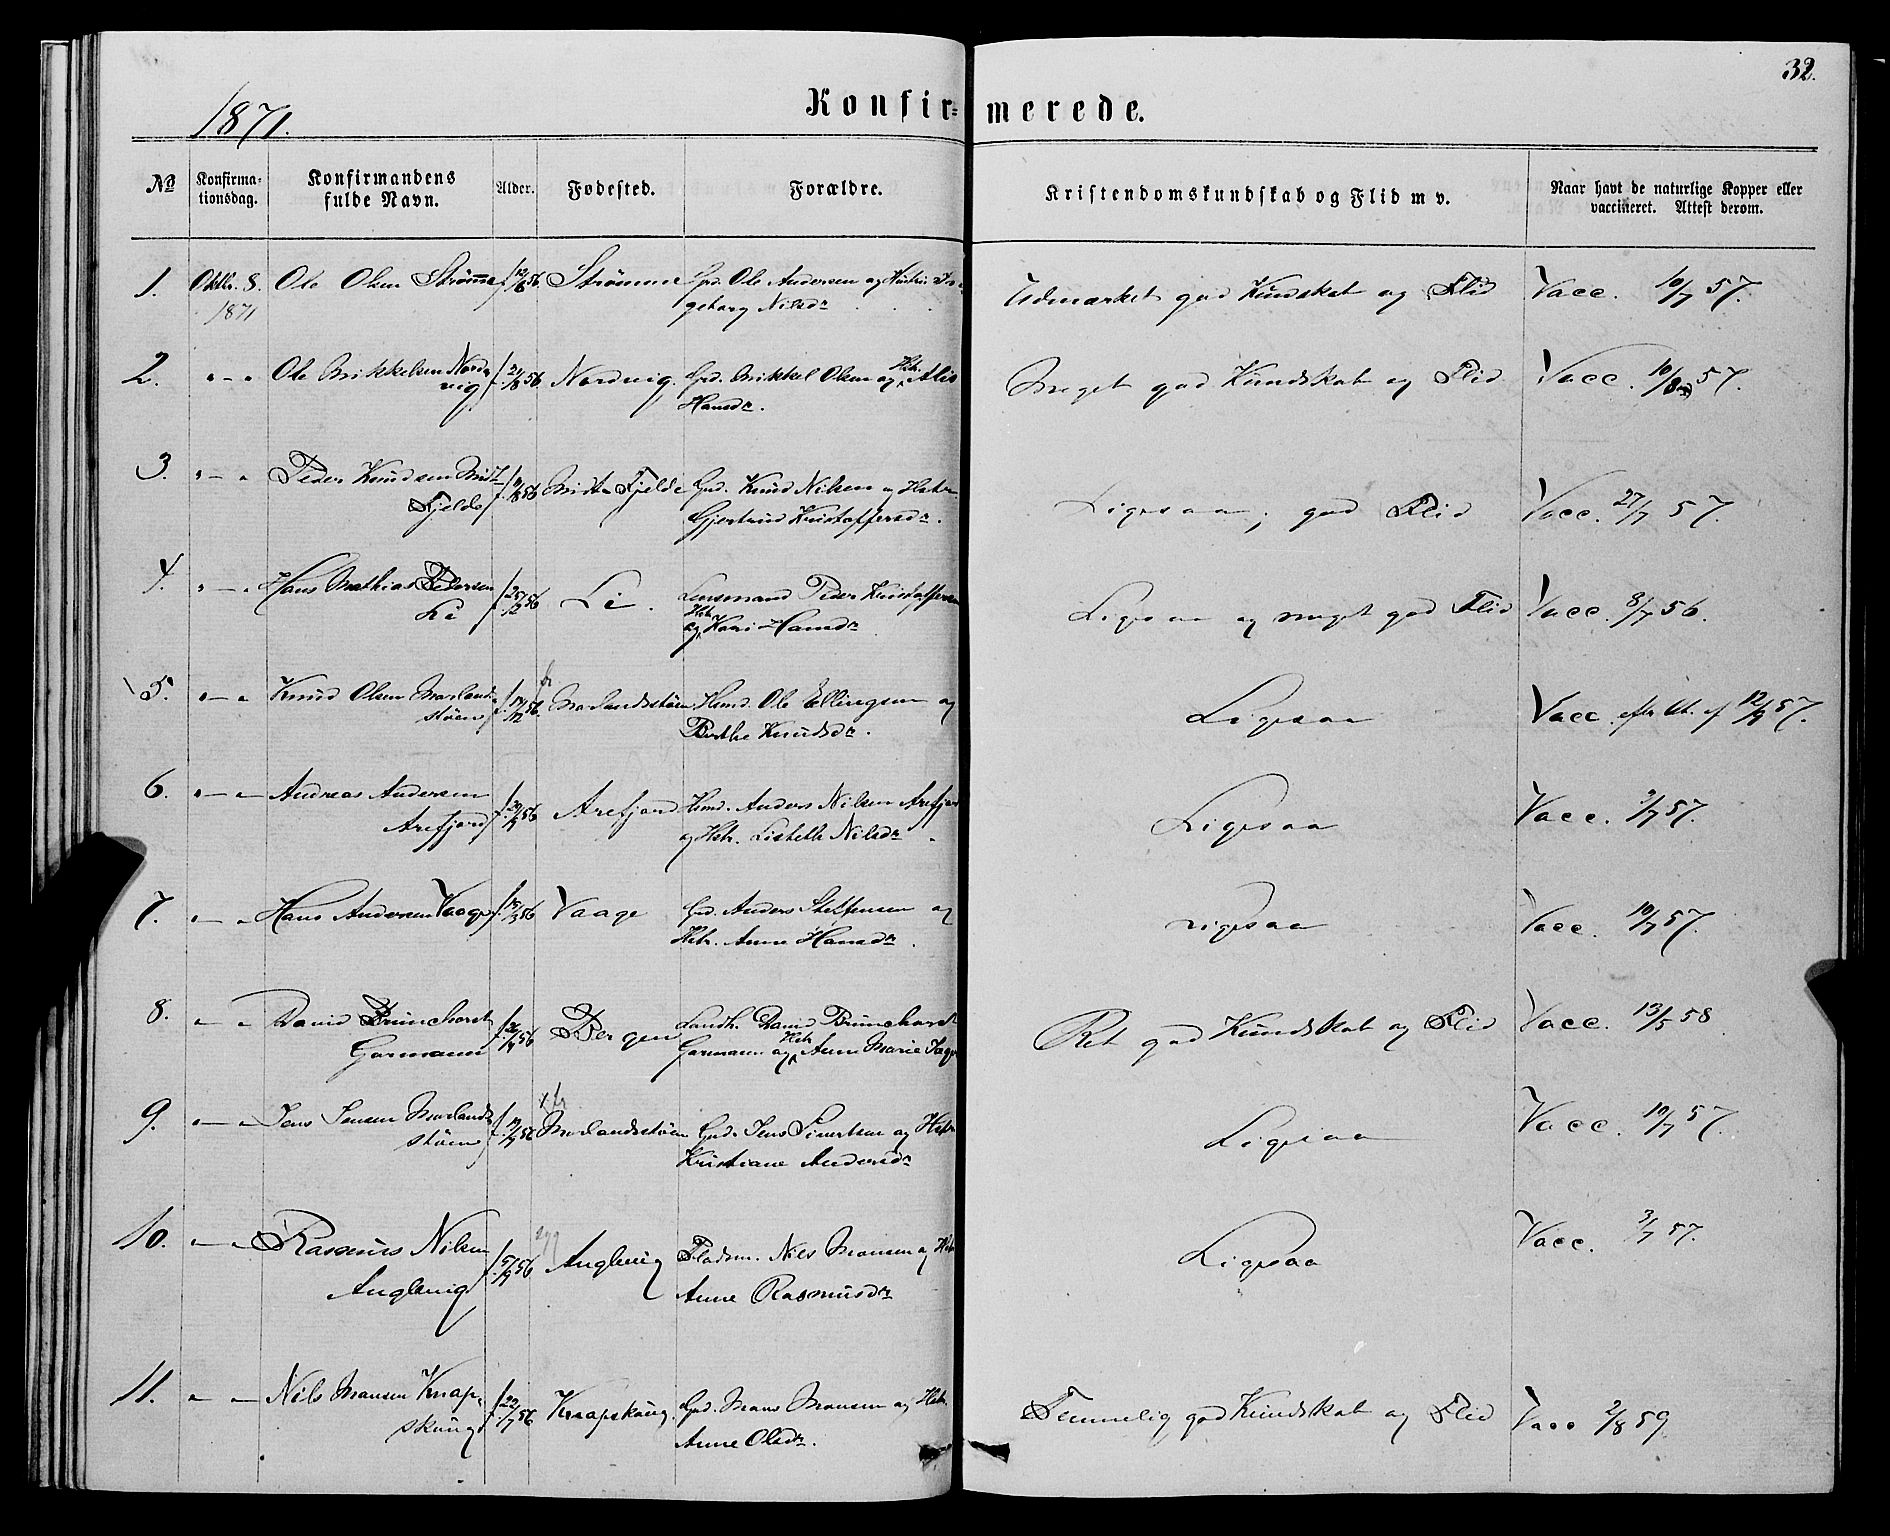 32.
1871.
Konfir= merede.
No
Konfirma-
tionsdag.
Konfirmandens
fulde Navn.
Alder.
Fødested.
Forældre.
Kristendomskundskab og Flid m v.
Naar havt de naturlige Kopper eller
vaccineret. Attest derom.
1. Oktbr. 8. Ole Olsen Strømme f. 56 Strømme Grd. Ole Andersen og
1871 geborg Nilsdr
Udmærket god Kundskab og Flid Vacc. 10/7 57.
2. " – " Ole Mikkelsen Nord-
vig f. 21/8 56 Nordvig. Grd. Mikkel Olsen og Hstr. Alis
Hansdr.
Meget god Kundskab og Flid Vacc. 10/8 57.
3. " – " Peder Knudsen Midt-
Fjelde f. 56 Midt-Fjelde Grd. Knud Nilsen og Hstr
Gjertrud Kristoffersdr.
Ligesaa, god Flid Vacc. 27/7 57.
4. " – " Hans Mathias Pedersen
Li f. 56 Li. Lensmand Peder Kristoffersen
og Hstr Kari Hansdr
Ligesaa og meget god Flid Vacc. 8/7 56.
5. " – " Knud Olsen Morlands-
støen f. 56. Morlandsstøen Hmd. Ole Ellingsen og
Berthe Knudsdr.
Ligesaa Vacc. efter At. af 12/9 57.
6. " – " Andreas Andersen
Arefjord f. 56 Arefjord Hmd. Anders Nilsen Arefjord
og Hstr. Lisbeth Nilsdr.
Ligesaa Vacc. 3/7 57.
7. " – " Hans Andersen Vaage f. 56 Vaage Grd. Anders Steffensen og
Hstr. Anne Hansdr.
Ligesaa Vacc. 10/7 57.
8. " – " David Brunchorst
Gormann f. 56 Bergen Landh. David Brunchorst
Gormann og Hstr Anne Marie
Ret god Kundskab og Flid Vacc. 13/5 58
9. " – " Jens Jensen Morlands-
støen f. 56 Morlandsstøen Grd. Jens Sivertsen og Hstr
Kristiane Andersdr
Ligesaa Vacc. 10/7 57.
10. " – " Rasmus Nilsen
Anglevig f. 56 Anglevig Pladsm. Nils Monsen og Hstr
Anne Rasmusdr
Ligesaa Vacc. 3/7 57.
11. " – " Nils Monsen Knap-
skoug f. 22/7 56 Knapskoug. Grd. Mons Monsen og Hstr.
Anne Olsdr.
Temmelig god Kundskab og Flid Vacc 2/8 59.